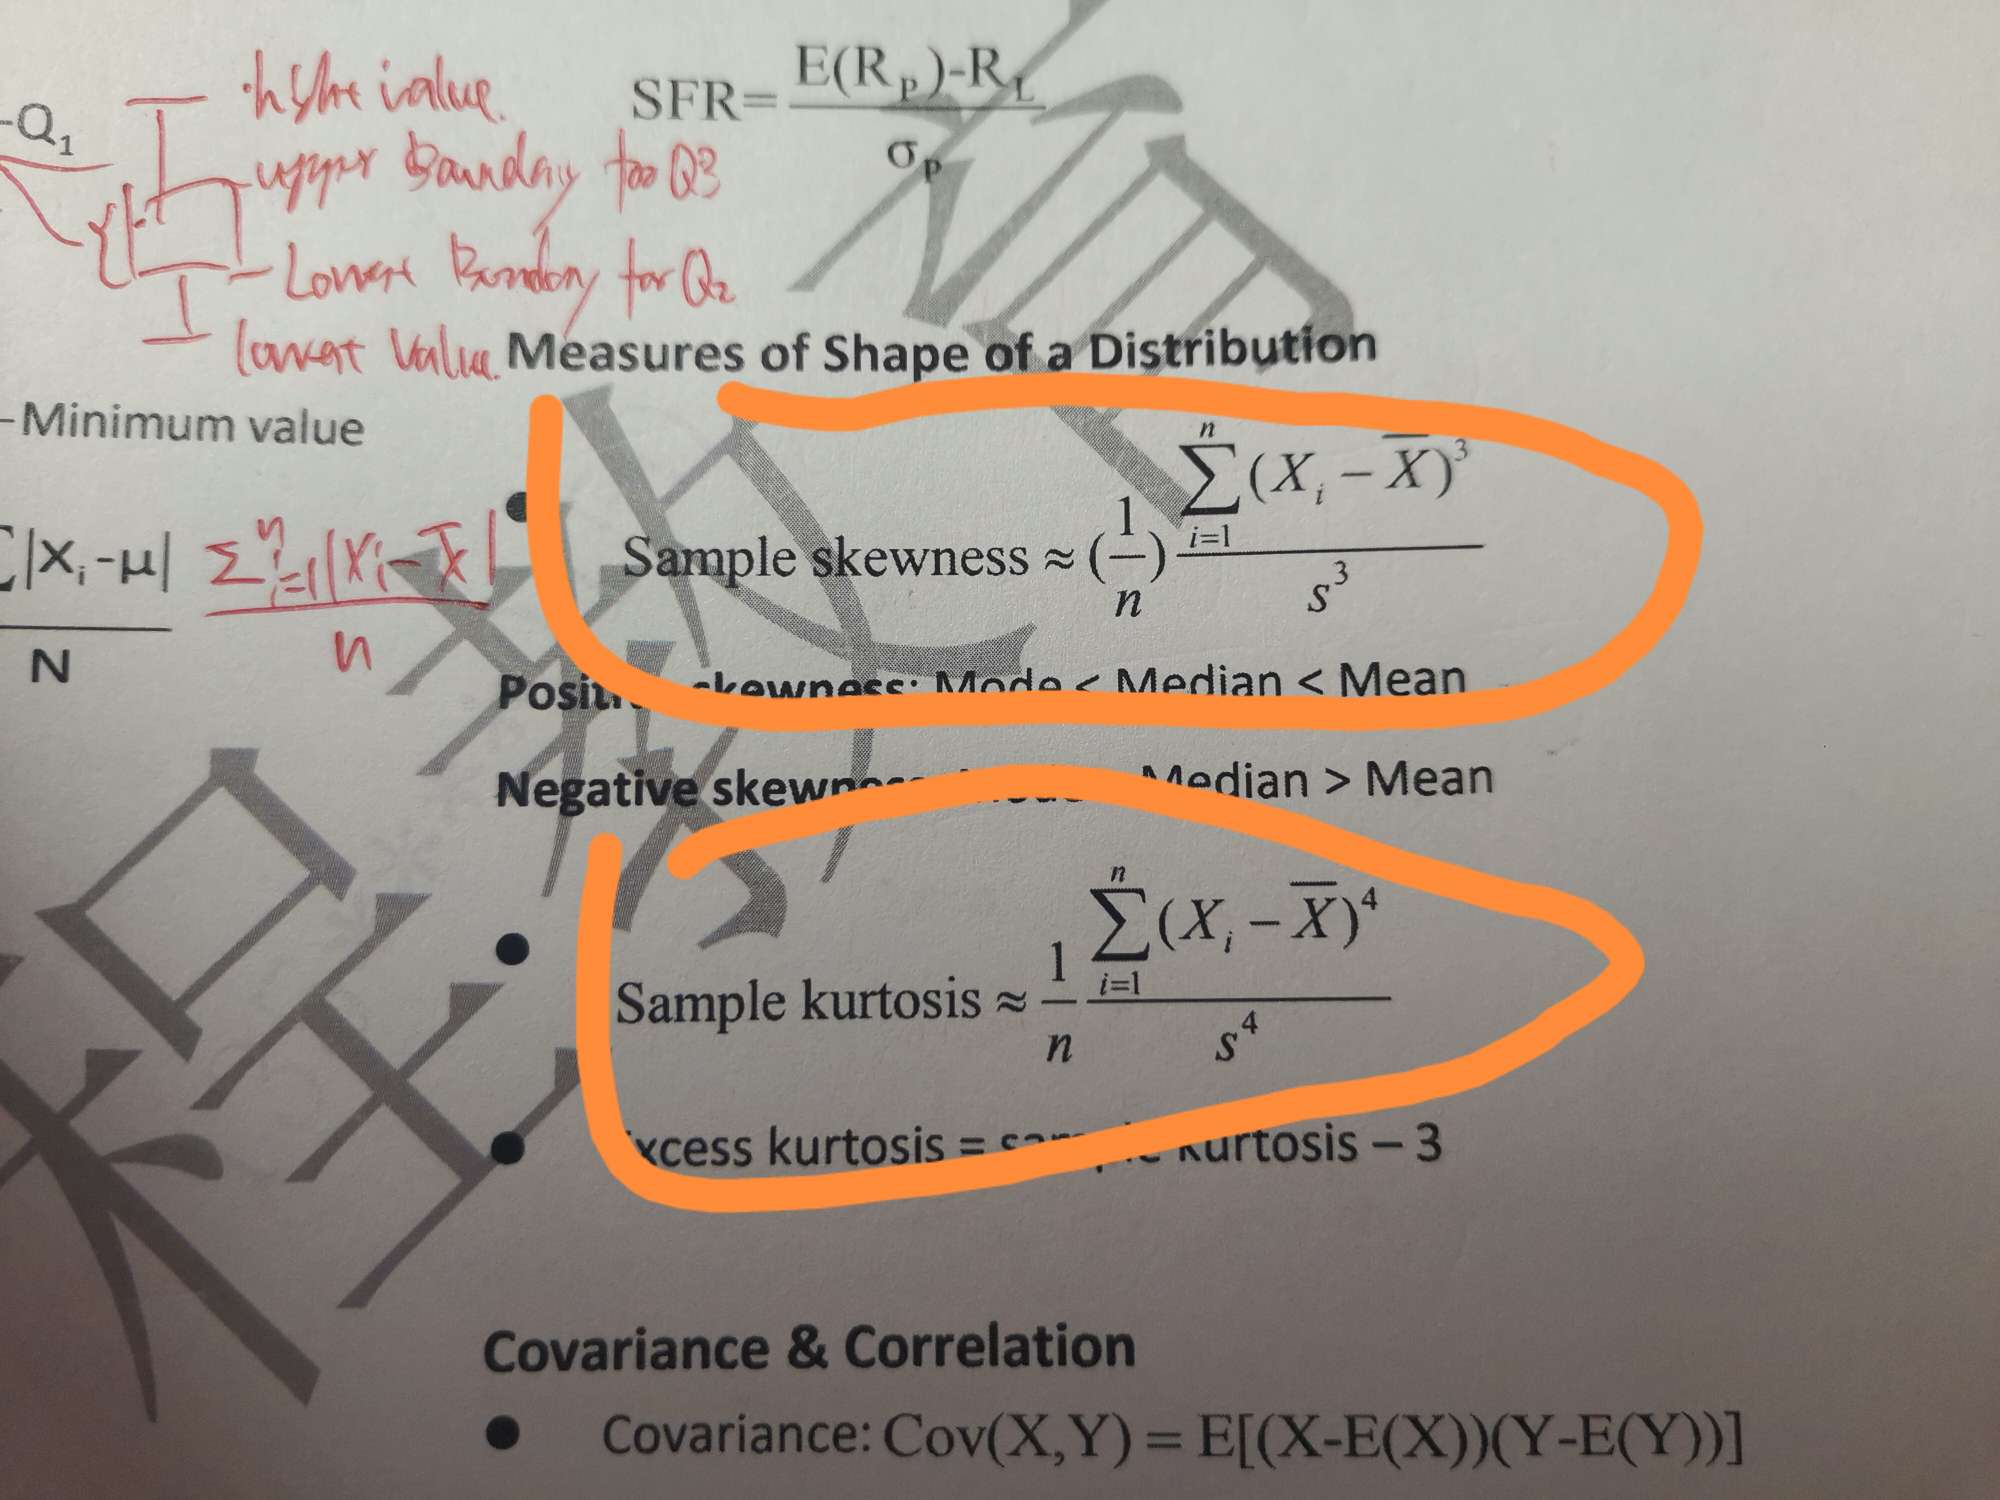 SFR= E(R_P)-R_L / σ_P
-Q₁
value.
upper Boundary for Q3
Boundary for Q₂
lowest Value.
Measures of Shape of a Distribution
-Minimum value
Sample skewness ≈ (1/n) ∑_{i=1}^{n} (X_i − X̅)³ / s³
|X_i-μ| / N
∑_{i=1}^{n} |X_i − X̅| / n
skewness: Mode < Median < Mean
Negative Median > Mean
● Sample kurtosis ≈ 1/n ∑_{i=1}^{n} (X_i − X̅)⁴ / s⁴
● kurtosis = kurtosis – 3
Covariance & Correlation
● Covariance: Cov(X,Y) = E[(X-E(X))(Y-E(Y))]